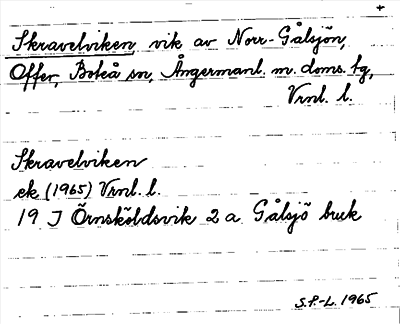 +
Skravelviken, vik av Norr-Gålsjön,
Offer, Boteå sn, Ångermanl. m. doms. tg,
Vrnl. l.
Skravelviken
ek (1965) Vrnl. l.
19 J Örnsköldsvik 2 a Gålsjö bruk
S.P-L. 1965